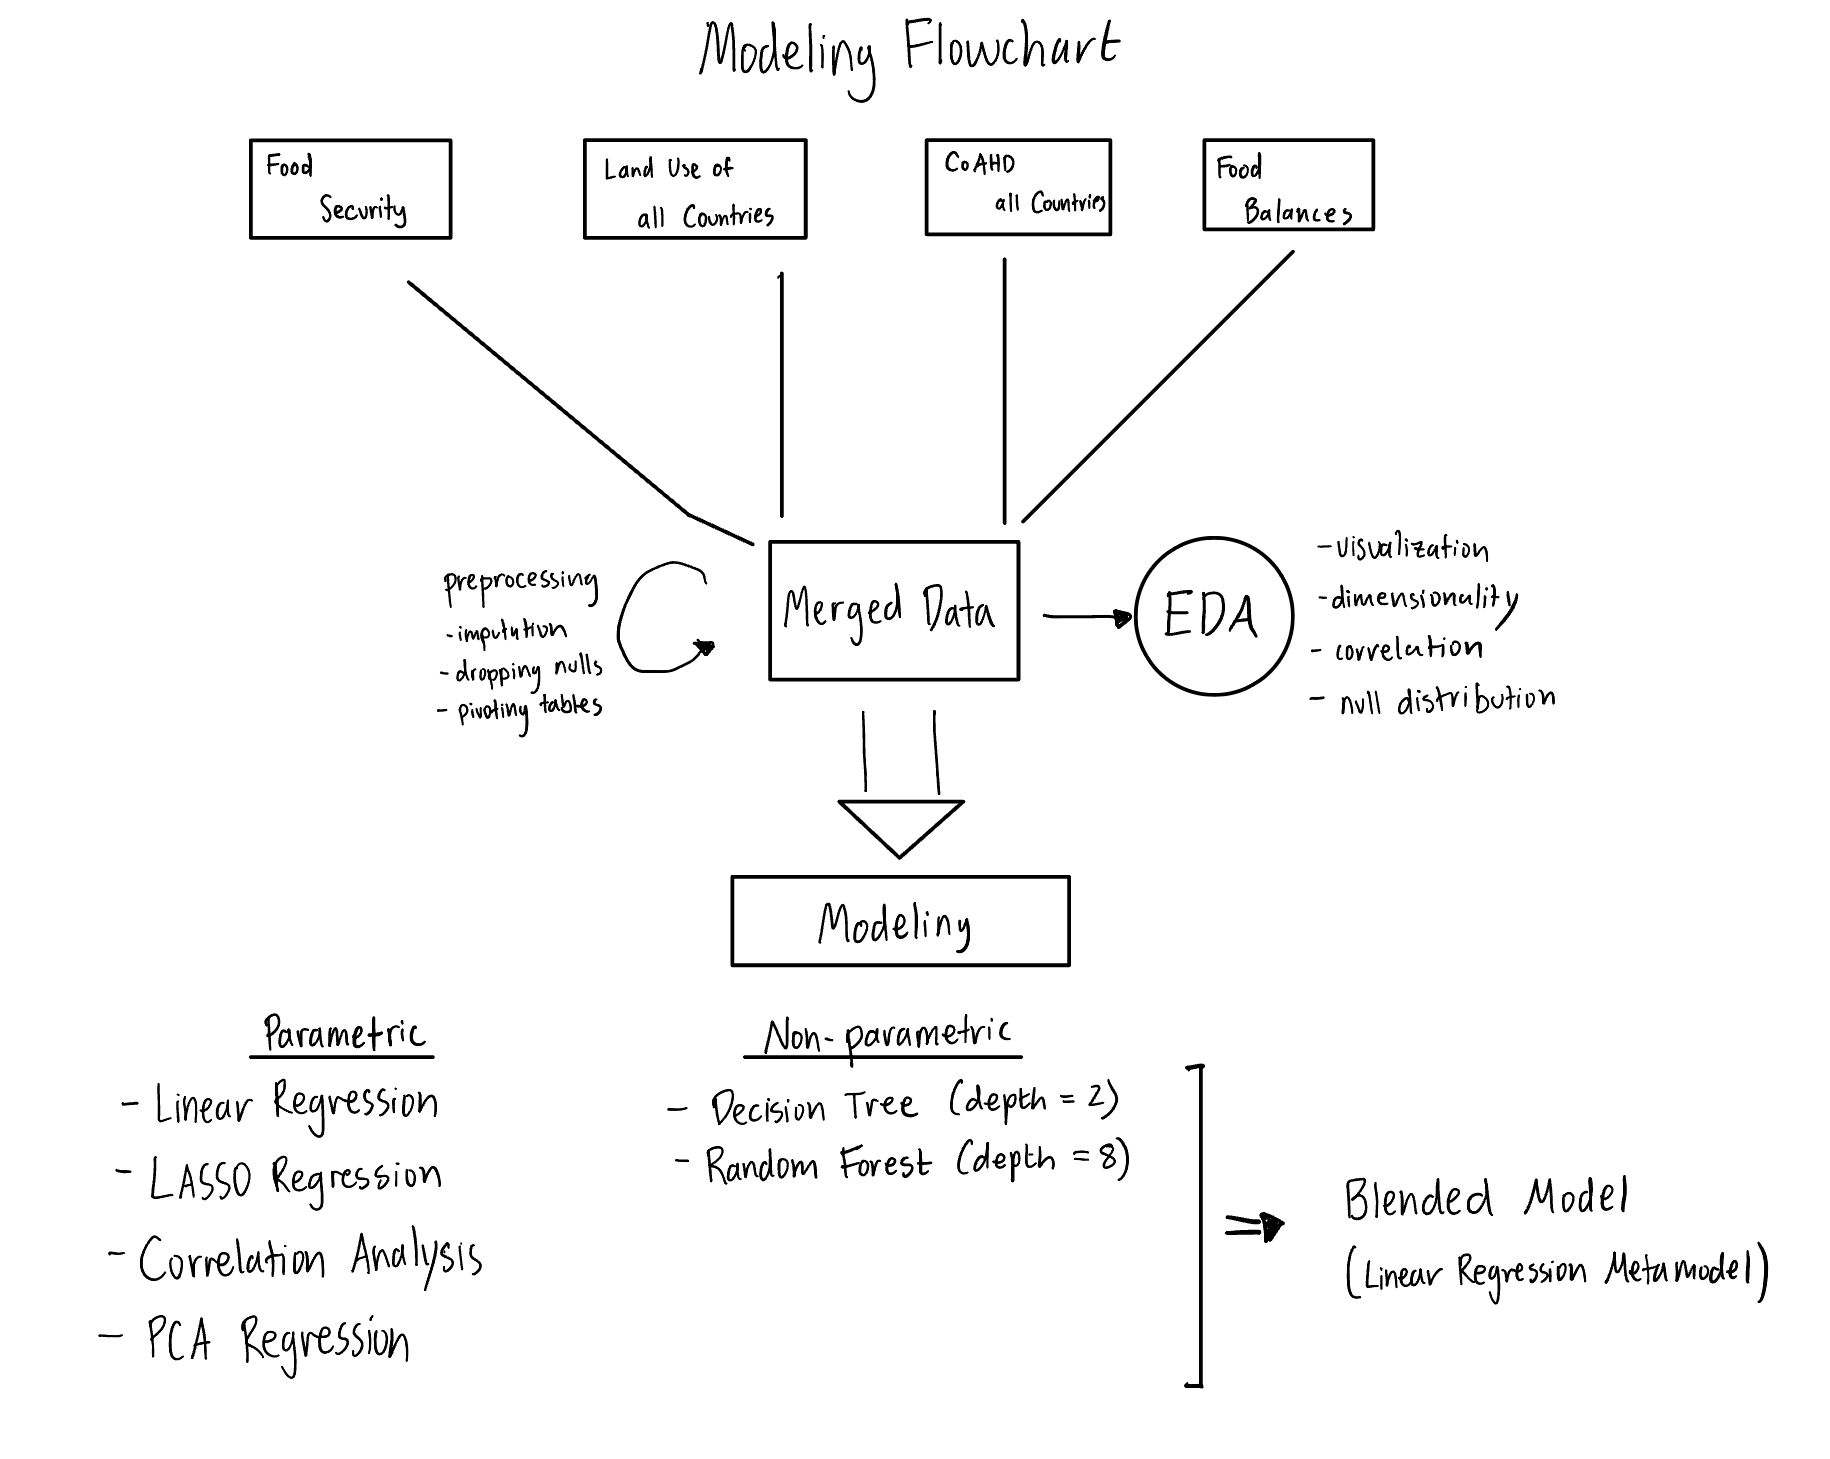 Modeling Flowchart
Food
Security
Land Use of
all Countries
CoAHD
all Countries
Food
Balances
preprocessing
-imputation
-dropping nulls
- pivoting tables
Merged Data
EDA
-visualization
-dimensionality
- correlation
- null distribution
Modeling
Parametric
- Linear Regression
- LASSO Regression
- Correlation Analysis
- PCA Regression
Non-parametric
- Decision Tree (depth = 2)
- Random Forest (depth = 8)
Blended Model
(Linear Regression Metamodel)